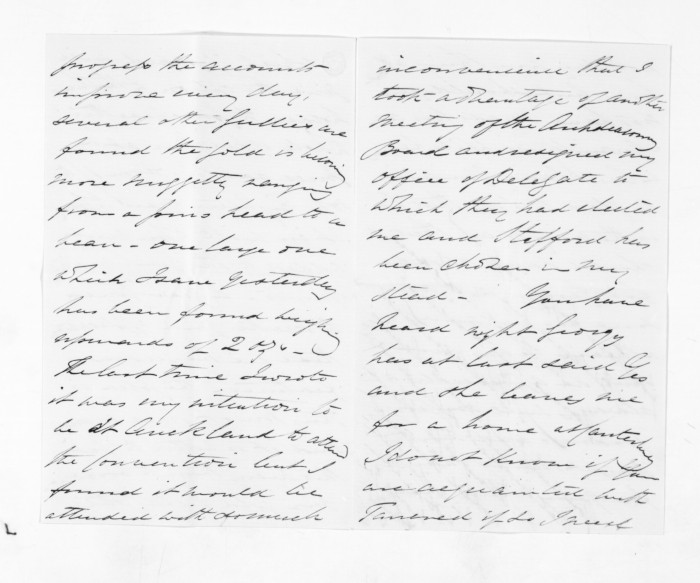 progress the accounts
improve every day,
several other gullies are
found the gold is becoming
more nuggetty ranging
from a pins head to a
bean - one large one
which I saw yesterday
has been found weighing
upwards of 2 ozs -
The last time I wrote
it was my intention to
be at Auckland to attend
the Convention but I
found it would be
attended with so much
inconvenience that I
took advantage of another
meeting of the Archdeaconry
Board and resigned my
office of Delegate to
which they had elected
me and Stafford has
been chosen in my
stead - You have
heard right Georgy
has at last said Yes
and she leaves me
for a home at Canterbury
I do not know if you
are acquainted with
Tancred if so I need